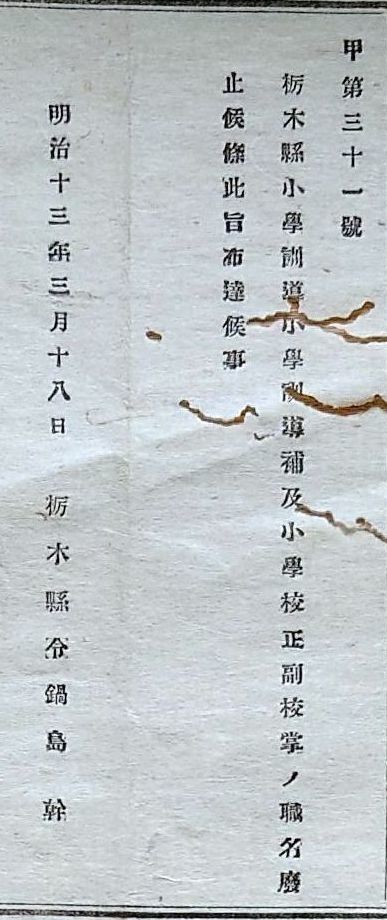 甲第三十一號
栃木縣小學訓導小學訓導補及小學校正副校掌ノ職名廢
止候條此旨布達候事
明治十三年三月十八日 栃木縣令鍋島幹